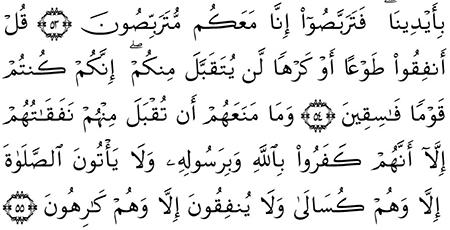 بِأَيْدِينَا ۖ فَتَرَبَّصُوٓا۟ إِنَّا مَعَكُم مُّتَرَبِّصُونَ ﴿٥٣﴾ قُلْ
أَنفِقُوا۟ طَوْعًا أَوْ كَرْهًا لَّن يُتَقَبَّلَ مِنكُمْ ۖ إِنَّكُمْ كُنتُمْ
قَوْمًا فَـٰسِقِينَ ﴿٥٤﴾ وَمَا مَنَعَهُمْ أَن تُقْبَلَ مِنْهُمْ نَفَقَـٰتُهُمْ
إِلَّآ أَنَّهُمْ كَفَرُوا۟ بِٱللَّهِ وَبِرَسُولِهِۦ وَلَا يَأْتُونَ ٱلصَّلَوٰةَ
إِلَّا وَهُمْ كُسَالَىٰ وَلَا يُنفِقُونَ إِلَّا وَهُمْ كَـٰرِهُونَ ﴿٥٥﴾